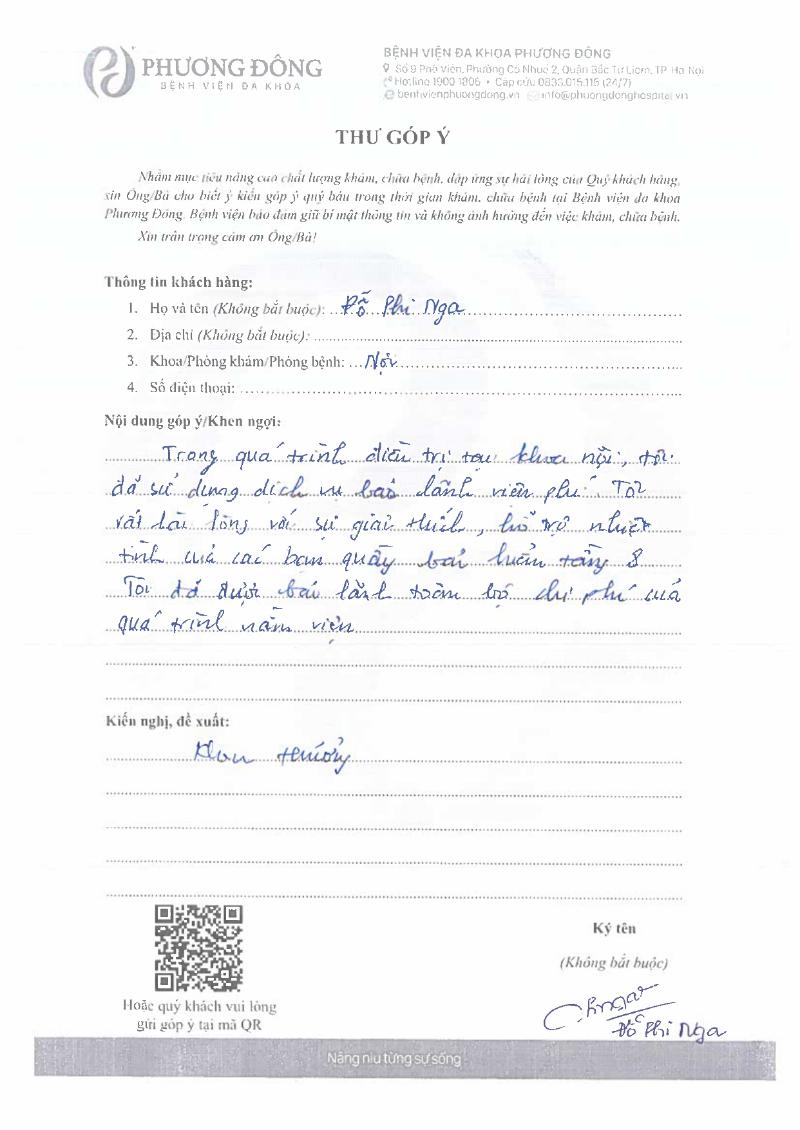 PHƯƠNG ĐÔNG
BỆNH VIỆN ĐA KHOA
BỆNH VIỆN ĐA KHOA PHƯƠNG ĐÔNG
Số 9 Phố Viên, Phường Cổ Nhuế 2, Quận Bắc Từ Liêm, TP Hà Nội
Hotline 1900 1806 • Cấp cứu 0833.015.115 (24/7)
benhvienphuongdong.vn info@phuongdonghospital.vn
THƯ GÓP Ý
Nhằm mục tiêu nâng cao chất lượng khám, chữa bệnh, đáp ứng sự hài lòng của Quý khách hàng,
xin Ông/Bà cho biết ý kiến góp ý quý báu trong thời gian khám, chữa bệnh tại Bệnh viện đa khoa
Phương Đông. Bệnh viện bảo đảm giữ bí mật thông tin và không ảnh hưởng đến việc khám, chữa bệnh.
Xin trân trọng cảm ơn Ông/Bà!
Thông tin khách hàng:
1. Họ và tên (Không bắt buộc): Đỗ Phi Nga
2. Địa chỉ (Không bắt buộc):
3. Khoa/Phòng khám/Phòng bệnh: Nội
4. Số điện thoại:
Nội dung góp ý/Khen ngợi:
Trong quá trình điều trị tại khoa nội, tôi
đã sử dụng dịch vụ bảo lãnh viện phí. Tôi
rất hài lòng với sự giải thích, hỗ trợ nhiệt
tình của các bạn quầy bảo hiểm tầng 8
Tôi đã được bảo lãnh toàn bộ chi phí của
quá trình nằm viện
Kiến nghị, đề xuất:
Khen thưởng
Ký tên
(Không bắt buộc)
Hoặc quý khách vui lòng
gửi góp ý tại mã QR
Đỗ Phi Nga
Nâng niu từng sự sống